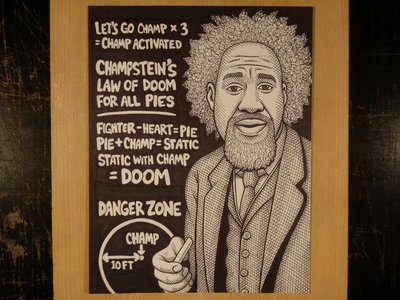 LET'S GO CHAMP × 3
= CHAMP ACTIVATED
CHAMPSTEIN'S
LAW OF DOOM
FOR ALL PIES
FIGHTER-HEART=PIE
PIE+CHAMP=STATIC
STATIC WITH CHAMP
= DOOM
DANGER ZONE
CHAMP
10FT